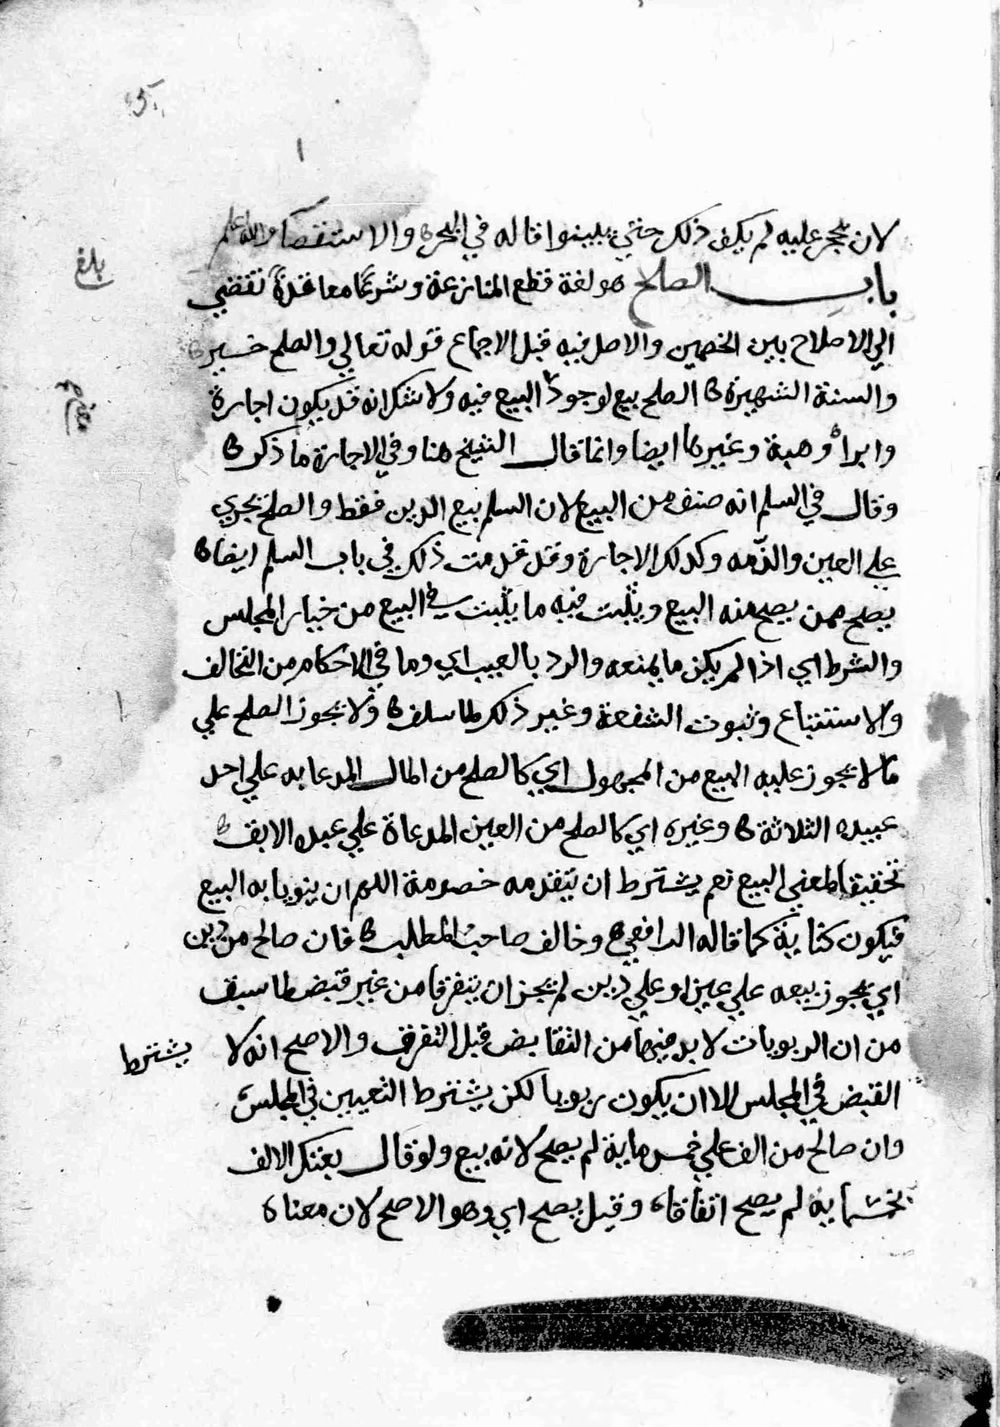 لان يحجر عليه لم يكف ذلك حتي يبينوا قاله في البحر ه والاستقصا والله اعلم
بلغ
باب الصلح هو لغة قطع المنازعة وشرعًا معاقدة تفضي
الي الاصلاح بين الخصمين والاصل فيه قبل الاجماع قوله تعالي والصلح خير ه
والسنة الشهيرة ه الصلح بيع لوجود البيع فيه ولا شك انه قد يكون اجارة
وابراءً وهبة وغيرها ايضا وانما قال الشيخ هنا وفي الاجارة ما ذكر ه
وقال في السلم انه صنف من البيع لان السلم بيع الدين فقط والصلح يجري
علي العين والذمه وكذلك الاجارة وقد قدمت ذلك في باب السلم ايضا ه
يصح ممن يصح منه البيع ويثبت فيه ما يثبت في البيع من خيار المجلس
والشرط اي اذا لم يكن ما يمنعه والرد بالعيب اي وما في الاحكام من التخالف
والاستتباع وثبوت الشفعة وغير ذلك لما سلف ه ولا يجوز الصلح علي
ما لا يجوز عليه البيع من المجهول اي كالصلح من المال المدعا به علي احد
عبيده الثلاثة ه وغيره اي كالصلح من العين المدعاة علي عبده الابق ه
تحقيقا لمعني البيع نعم يشترط ان يتقدمه خصومة اللهم ان ينويا به البيع
فيكون كناية كما قاله الرافعي ه وخالف صاحب المطلب ه فان صالح من دين
اي يجوز بيعه علي عين او علي دين لم يجز ان يتفرقا من غير قبض لما سبق
من ان الربويات لا بد فيها من التقابض قبل التفرق والاصح انه لا يشترط
القبض في المجلس الا ان يكون ربويا لكن يشترط التعيين في المجلس
وان صالح من الف علي خمس ماية لم يصح لانه بيع ولو قال بعتك الالف
بخمسماية لم يصح اتفاقا، وقيل يصح اي وهو الاصح لان معناه